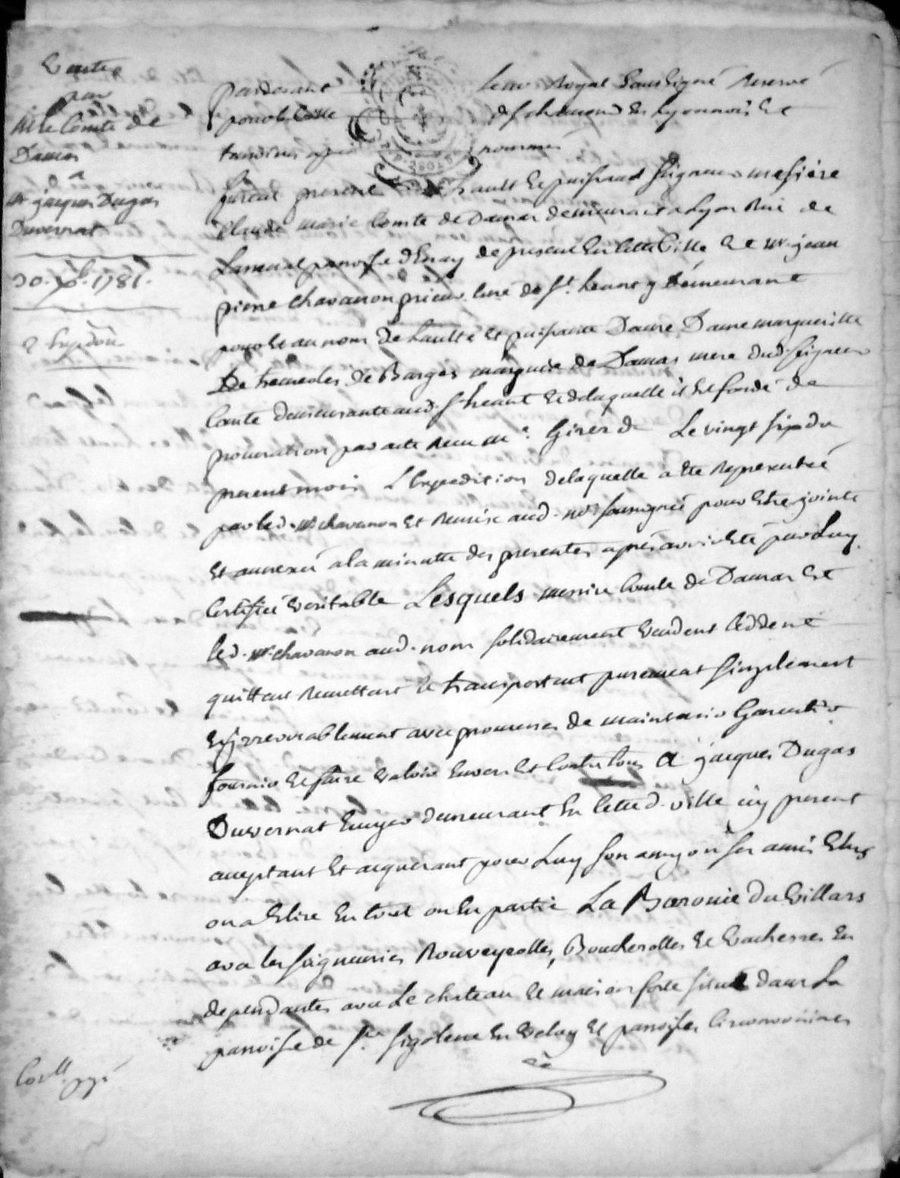 Vente
par
Mr le Comte de
Damas
Mr jacques Dugas
Duvernat
30. xbre. 1781.
2 Expedon
pardevant le no.re Royal Soussigné Reservé
pour la Ville de St chamond en Lyonnois Et
temoins apres nommés
fut present hault Et puissant Seigneur messire
Claude marie Comte de Damas demeurant a Lyon Rue de
Laroisse d'Enay de present En cette Ville Et Mr jean
pierre Chavanon prieur curé de St. heant y Demeurant
pour Et au nom De haulte Et puissante Dame Dame margueritte
De tremeoles de Barges marquise de Damas mere dud. Seigneur
Comte demeurante aud. St heant Et de laquelle il Est fondé de
procuration par acte Recu Me. Girerd Le vingt six du
present mois L'Expedition de laquelle a Eté Representée
par led. Mr chavanon Et Remise aud. nore soussigné pour Etre jointe
Et annexée a la minutte des presentes apres avoir Eté par Luy
Certifiée veritable Lesquels messire Comte de Damas Et
led. Mr chavanon aud. nom solidairement vendent Ceddent
quittent Remettent Et transportent purement Simplement
Et irrevocablement avec promesses de maintenir Garentir
fournir Et faire valoir Envers Et Contre tous A jacques Dugas
Duvernat Ecuyer demeurant En cette d. ville icy present
aceptant Et acquerant pour Luy Son amy ou ses amis Elus
ou a Elire En tout ou En partie La Baronie du Villars
avec les Seigneuries Rouveyrolles, Boucherolles Et Vacheresses En
dependantes avec Le chateau Et maison forte situé dans La
paroisse de Ste Sigolene En Velay Et paroisses Circonvoisines